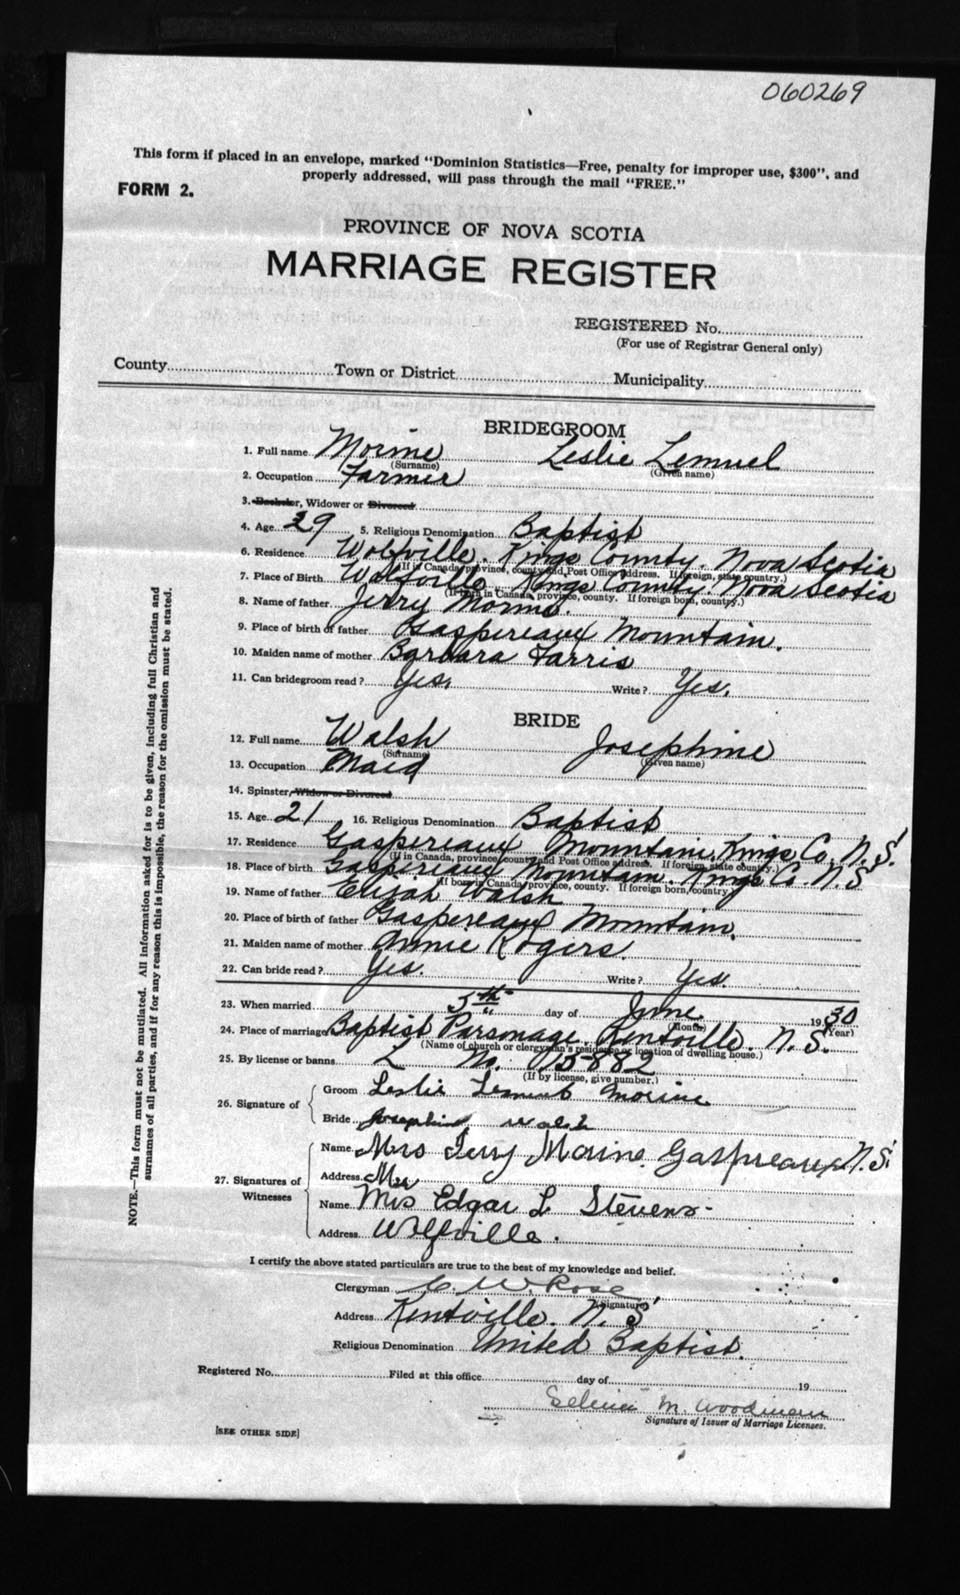 060269
This form if placed in an envelope, marked "Dominion Statistics—Free, penalty for improper use, $300", and
properly addressed, will pass through the mail "FREE."
FORM 2.
PROVINCE OF NOVA SCOTIA
MARRIAGE REGISTER
REGISTERED No.
(For use of Registrar General only)
County Town or District Municipality
BRIDEGROOM
1. Full name Morine Leslie Lemuel
(Surname) (Given name)
2. Occupation Farmer
3. Bachelor, Widower or Divorced
4. Age 29 5. Religious Denomination Baptist
6. Residence Wolfville. Kings County. Nova Scotia
(If in Canada, province, county and Post Office address. If foreign, state country.)
7. Place of Birth Wolfville Kings County. Nova Scotia
(If born in Canada, province, county. If foreign born, country.)
8. Name of father Jerry Morine.
9. Place of birth of father Gaspereaux Mountain.
10. Maiden name of mother Barbara Farris
11. Can bridegroom read? Yes. Write? Yes.
BRIDE
12. Full name Walsh Josephine
(Surname) (Given name)
13. Occupation Maid
14. Spinster, Widow or Divorced
15. Age 21 16. Religious Denomination Baptist
17. Residence Gaspereaux Mountain. Kings Co. N.S.
(If in Canada, province, county and Post Office address. If foreign, state country.)
18. Place of birth Gaspereaux Mountain. Kings Co. N.S
(If born in Canada, province, county. If foreign born, country.)
19. Name of father Elijah Walsh
20. Place of birth of father Gaspereaux Mountain.
21. Maiden name of mother Annie Rogers.
22. Can bride read? Yes. Write? Yes.
23. When married 5th day of June 1930
(Month) (Year)
24. Place of marriage Baptist Parsonage. Kentville. N.S.
(Name of church or clergyman's residence or location of dwelling house.)
25. By license or banns L No. 15882
(If by license, give number.)
26. Signature of
Groom Leslie Morine
Bride Josephine Walsh
27. Signatures of Witnesses
Name Mrs Jerry Morine Gaspreaux N.S.
Address Mrs
Name Mrs Edgar L Stevens-
Address Wolfville.
I certify the above stated particulars are true to the best of my knowledge and belief.
Clergyman C. W. Rose
(Signature)
Address Kentville. N.S
Religious Denomination United Baptist.
Registered No. Filed at this office day of 19
Selina M. Woodman
Signature of Issuer of Marriage Licenses.
[SEE OTHER SIDE]
NOTE.—This form must not be mutilated. All information asked for is to be given, including full Christian and
surnames of all parties, and if for any reason this is impossible, the reason for the omission must be stated.